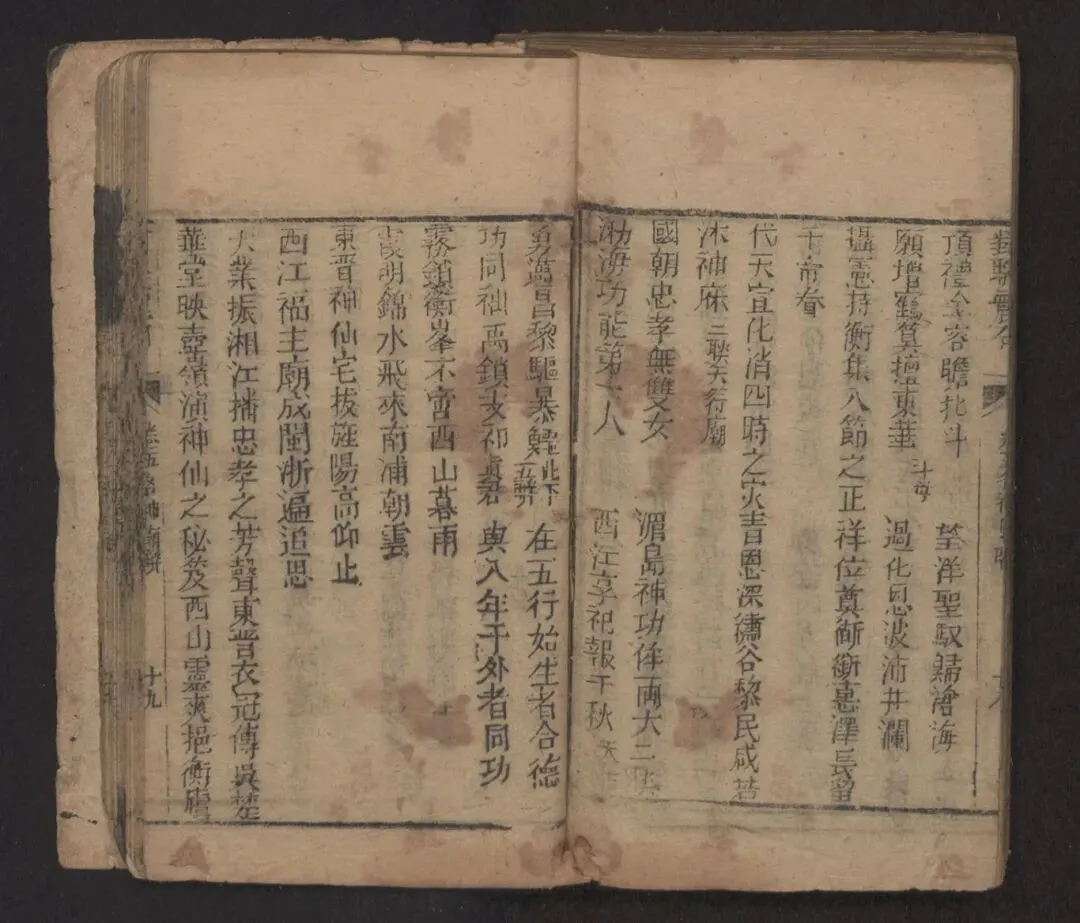 頂禮金容瞻北斗 望洋聖馭歸滄海
願增鶴算挹東華 斗母 過化恩波沛井瀾
攝憲持衡集八節之正祥位奠衡惠澤長留
千帝眷
代天宣化消四時之灾眚恩深繡谷黎民咸若
沐神庥 三聯天行廟
國朝忠孝無雙女 湄島神功侔兩大
海功能第一人 西江享祀報千秋
昌黎驅暴鱷 在五行始生者合德
功同神禹鎖支祁 與八年于外者同功
霧鎖衡峯不啻西山暮雨
霞明錦水飛來南浦朝雲
東晋神仙宅拔旌陽高仰止
西江福主廟成閩浙遍追思
大業振湘江播忠孝之芳聲東晋衣冠傳吳楚
華堂映壺嶺演神仙之秘笈西山靈爽挹衡廬
十九